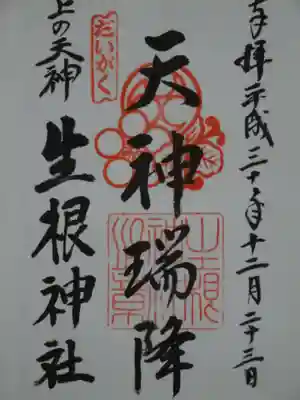 奉拝 平成三十年十二月二十三日
天神瑞降
上の天神
生根神社
だいがく
生根神社之章